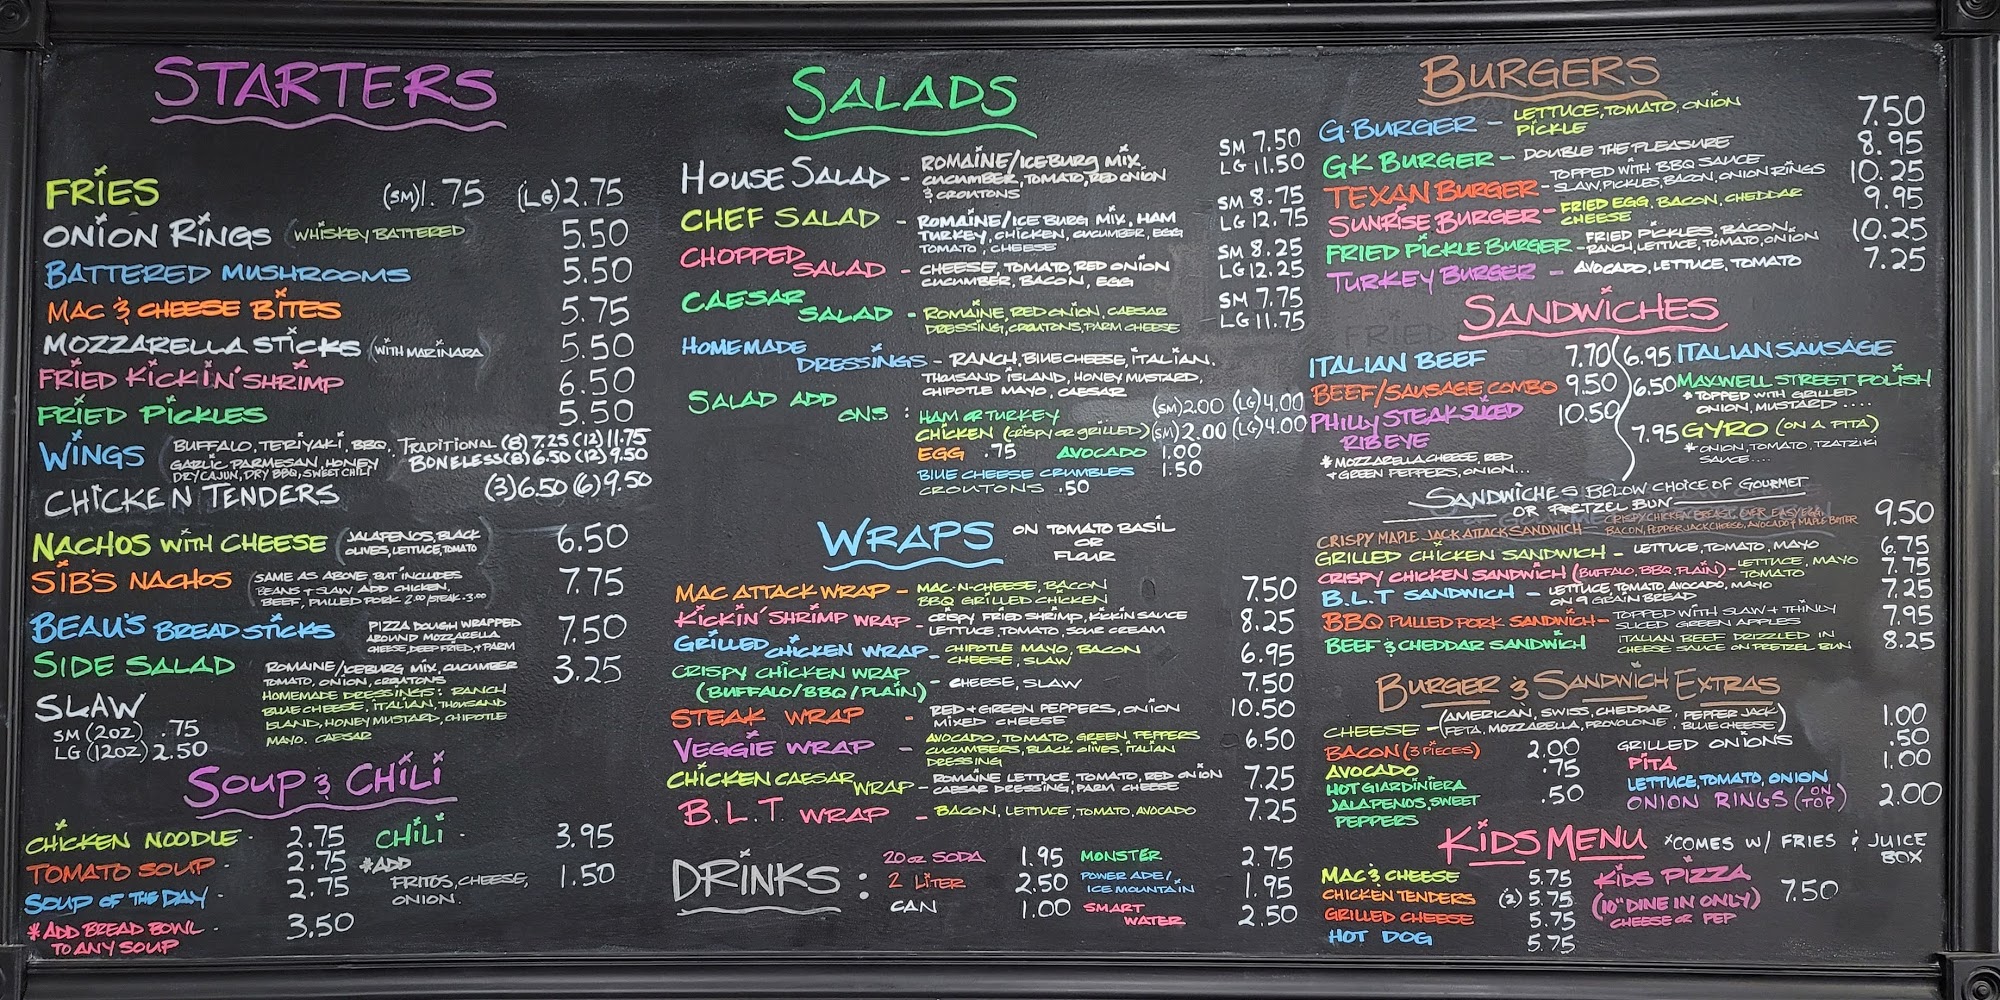 STARTERS
FRIES (SM) 1.75 (LG) 2.75
ONION RINGS (WHISKEY BATTERED) 5.50
BATTERED MUSHROOMS 5.50
MAC & CHEESE BITES 5.75
MOZZARELLA STICKS (WITH MARINARA) 5.50
FRIED KICKIN' SHRIMP 6.50
FRIED PICKLES 5.50
WINGS BUFFALO, TERIYAKI, BBQ, TRADITIONAL (8) 7.25 (12) 11.75
GARLIC PARMESAN, HONEY BONELESS (8) 6.50 (12) 9.50
DRY CAJUN, DRY BBQ, SWEET CHILI
CHICKEN TENDERS (3) 6.50 (6) 9.50
NACHOS WITH CHEESE (JALAPENOS, BLACK 6.50
OLIVES, LETTUCE, TOMATO
SIB'S NACHOS (SAME AS ABOVE BUT INCLUDES 7.75
BEANS + SLAW ADD CHICKEN,
BEEF, PULLED PORK 2.00/STEAK .3.00
BEAU'S BREAD STICKS PIZZA DOUGH WRAPPED 7.50
AROUND MOZZARELLA
CHEESE, DEEP FRIED, + PARM
SIDE SALAD ROMAINE/ICEBURG MIX, CUCUMBER 3.25
TOMATO, ONION, CROUTONS
HOMEMADE DRESSINGS: RANCH
BLUE CHEESE, ITALIAN, THOUSAND
ISLAND, HONEY MUSTARD, CHIPOTLE
MAYO. CAESAR
SLAW
SM (2OZ) .75
LG (12OZ) 2.50
SOUP & CHILI
CHICKEN NOODLE - 2.75
TOMATO SOUP - 2.75
SOUP OF THE DAY - 2.75
*ADD BREAD BOWL - 3.50
TO ANY SOUP
CHILI - 3.95
*ADD
FRITOS, CHEESE, 1.50
ONION.
SALADS
HOUSE SALAD - ROMAINE/ICEBURG MIX, SM 7.50
CUCUMBER, TOMATO, RED ONION LG 11.50
& CROUTONS
CHEF SALAD - ROMAINE/ICE BURG MIX, HAM SM 8.75
TURKEY, CHICKEN, CUCUMBER, EGG LG 12.75
TOMATO, CHEESE
CHOPPED SM 8.25
SALAD - CHEESE, TOMATO, RED ONION LG 12.25
CUCUMBER, BACON, EGG
CAESAR SM 7.75
SALAD - ROMAINE, RED ONION, CAESAR LG 11.75
DRESSING, CROUTONS, PARM CHEESE
HOMEMADE
DRESSINGS - RANCH, BLUE CHEESE, ITALIAN,
THOUSAND ISLAND, HONEY MUSTARD,
CHIPOTLE MAYO, CAESAR
SALAD ADD
ONS : HAM OR TURKEY (SM) 2.00 (LG) 4.00
CHICKEN (CRISPY OR GRILLED) (SM) 2.00 (LG) 4.00
EGG .75 AVOCADO 1.00
BLUE CHEESE CRUMBLES 1.50
CROUTONS .50
WRAPS ON TOMATO BASIL
OR
FLOUR
MAC ATTACK WRAP - MAC-N-CHEESE, BACON 7.50
BBQ GRILLED CHICKEN
KICKIN' SHRIMP WRAP - CRISPY FRIED SHRIMP, KICKIN SAUCE 8.25
LETTUCE, TOMATO, SOUR CREAM
GRILLED CHICKEN WRAP - CHIPOTLE MAYO, BACON 6.95
CHEESE, SLAW
CRISPY CHICKEN WRAP - CHEESE, SLAW 7.50
(BUFFALO/BBQ/PLAIN)
STEAK WRAP - RED + GREEN PEPPERS, ONION 10.50
MIXED CHEESE
VEGGIE WRAP - AVOCADO, TOMATO, GREEN PEPPERS 6.50
CUCUMBERS, BLACK OLIVES, ITALIAN
DRESSING
CHICKEN CAESAR WRAP - ROMAINE LETTUCE, TOMATO, RED ONION 7.25
CAESAR DRESSING, PARM CHEESE
B.L.T. WRAP - BACON, LETTUCE, TOMATO, AVOCADO 7.25
DRINKS :
20 oz SODA 1.95
2 LITER 2.50
CAN 1.00
MONSTER 2.75
POWERADE/
ICE MOUNTAIN 1.95
SMART
WATER 2.50
BURGERS
G-BURGER - LETTUCE, TOMATO, ONION 7.50
PICKLE
GK BURGER - DOUBLE THE PLEASURE 8.95
TEXAN BURGER - TOPPED WITH BBQ SAUCE 10.25
SLAW, PICKLES, BACON, ONION RINGS
SUNRISE BURGER - FRIED EGG, BACON, CHEDDAR 9.95
CHEESE
FRIED PICKLE BURGER - FRIED PICKLES, BACON, 10.25
RANCH, LETTUCE, TOMATO, ONION
TURKEY BURGER - AVOCADO, LETTUCE, TOMATO 7.25
SANDWICHES
ITALIAN BEEF 7.70
BEEF/SAUSAGE COMBO 9.50
PHILLY STEAK SLICED 10.50
RIBEYE
*MOZZARELLA CHEESE, RED
+ GREEN PEPPERS, ONION...
6.95 ITALIAN SAUSAGE
6.50 MAXWELL STREET POLISH
*TOPPED WITH GRILLED
ONION, MUSTARD ....
7.95 GYRO (ON A PITA)
*ONION, TOMATO, TZATZIKI
SAUCE....
SANDWICHES BELOW CHOICE OF GOURMET
OR PRETZEL BUN
CRISPY MAPLE JACK ATTACK SANDWICH - CRISPY CHICKEN BREAST, OVER EASY EGG, 9.50
BACON, PEPPER JACK CHEESE, AVOCADO + MAPLE BUTTER
GRILLED CHICKEN SANDWICH - LETTUCE, TOMATO, MAYO 6.75
CRISPY CHICKEN SANDWICH (BUFFALO, BBQ, PLAIN) - LETTUCE, MAYO 7.75
TOMATO
B.L.T SANDWICH - LETTUCE, TOMATO, AVOCADO, MAYO 7.25
ON 9 GRAIN BREAD
BBQ PULLED PORK SANDWICH - TOPPED WITH SLAW + THINLY 7.95
SLICED GREEN APPLES
BEEF & CHEDDAR SANDWICH ITALIAN BEEF DRIZZLED IN 8.25
CHEESE SAUCE ON PRETZEL BUN
BURGER & SANDWICH EXTRAS
CHEESE - (AMERICAN, SWISS, CHEDDAR, PEPPER JACK) 1.00
(FETA, MOZZARELLA, PROVOLONE, BLUE CHEESE)
BACON (3 PIECES) 2.00
AVOCADO .75
HOT GIARDINIERA
JALAPENOS, SWEET .50
PEPPERS
GRILLED ONIONS .50
PITA 1.00
LETTUCE, TOMATO, ONION
ONION RINGS (ON TOP) 2.00
KIDS MENU *COMES W/ FRIES & JUICE
BOX
MAC & CHEESE 5.75
CHICKEN TENDERS (2) 5.75
GRILLED CHEESE 5.75
HOT DOG 5.75
KIDS PIZZA
(10" DINE IN ONLY) 7.50
CHEESE OR PEP